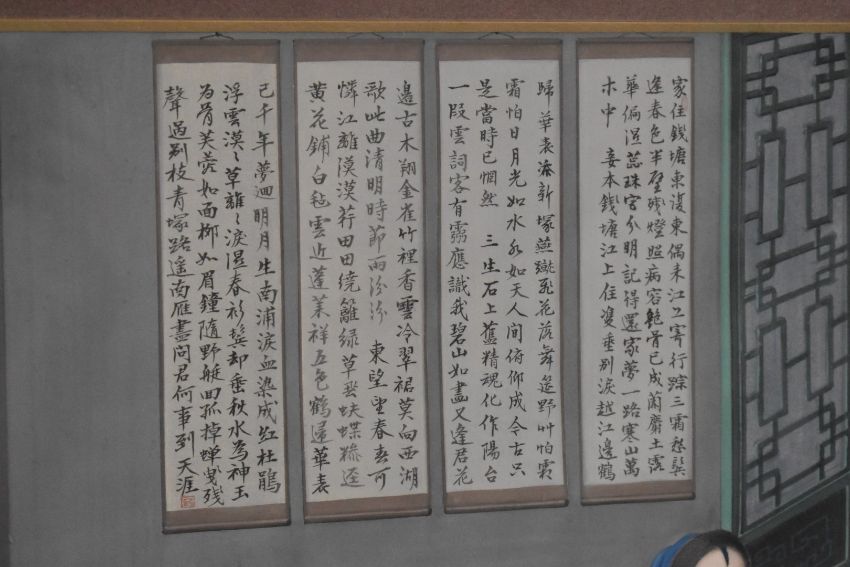 家住錢塘東復東偶來江上寄行踪三霜愁鬢
逢春色半壁殘燈照病容艷骨已成蘭麝土露
華偏濕蕊珠宮分明記得還家夢一路寒山萬
木中 妾本錢塘江上住雙垂別淚越江邊鶴
歸華表添新塚燕蹴飛花落舞筵野艸怕霜
霜怕日月光如水水如天人間俯仰成今古只
是當時已惘然 三生石上舊精魂化作陽台
一段雲詞客有靈應識我碧山如畫又逢君花
邊古木翔金雀竹裡香雲冷翠裾莫向西湖
歌此曲清明時節雨汾汾 東望望春春可
憐江蘺漠漠荇田田繞籬綠草蛺蝶糝逕
黃花鋪白毡雲近蓬萊祥五色鶴還華表
已千年夢迴明月生南浦淚血染成紅杜鵑
浮雲漠〻草離〻淚濕春衫鬢却垂秋水為神玉
為骨芙蓉如面柳如眉鐘隨野艇回孤棹蟬曳殘
聲過別枝青塚路遙南雁盡問君何事到天涯